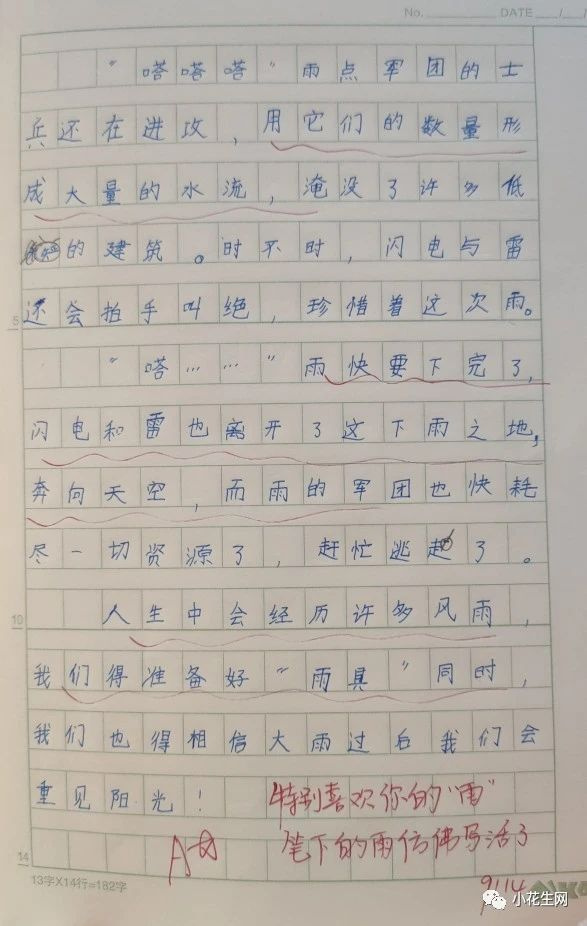 No. DATE / /
“嗒嗒嗒”雨点军团的士
兵还在进攻，用它们的数量形
成大量的水流，淹没了许多低
的建筑。时不时，闪电与雷
还会拍手叫绝，珍惜着这次雨。
5
“嗒……”雨快要下完了，
闪电和雷也离开了这下雨之地，
奔向天空，而雨的军团也快耗
尽一切资源了，赶忙逃起了。
人生中会经历许多风雨，
10
我们得准备好“雨具”同时，
我们也得相信大雨过后我们会
重见阳光！
特别喜欢你的“雨”
笔下的雨仿佛写活了
A
14
13字X14行=182字
9.14
小花生网